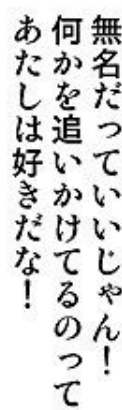 無名だっていいじゃん！
何かを追いかけてるのって
あたしは好きだな！